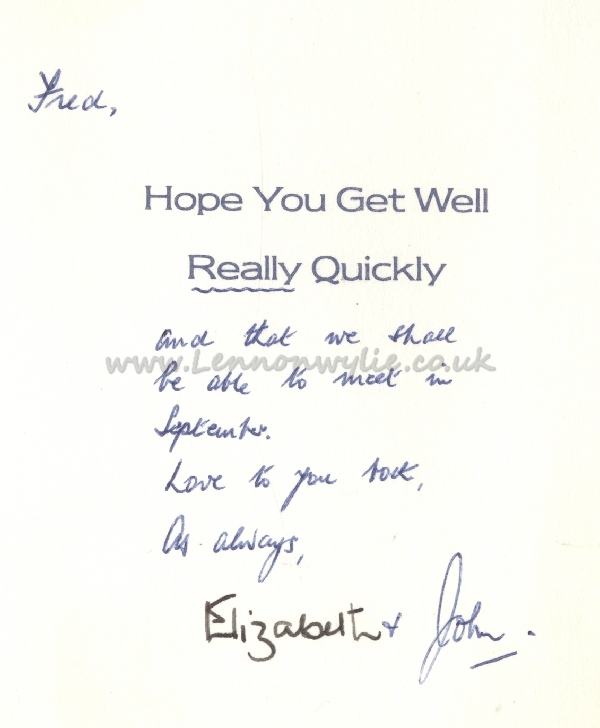 Fred,
Hope You Get Well
Really Quickly
and that we shall
www.Lennonwylie.co.uk
be able to meet in
September.
Love to you both,
As always,
Elizabeth & John.